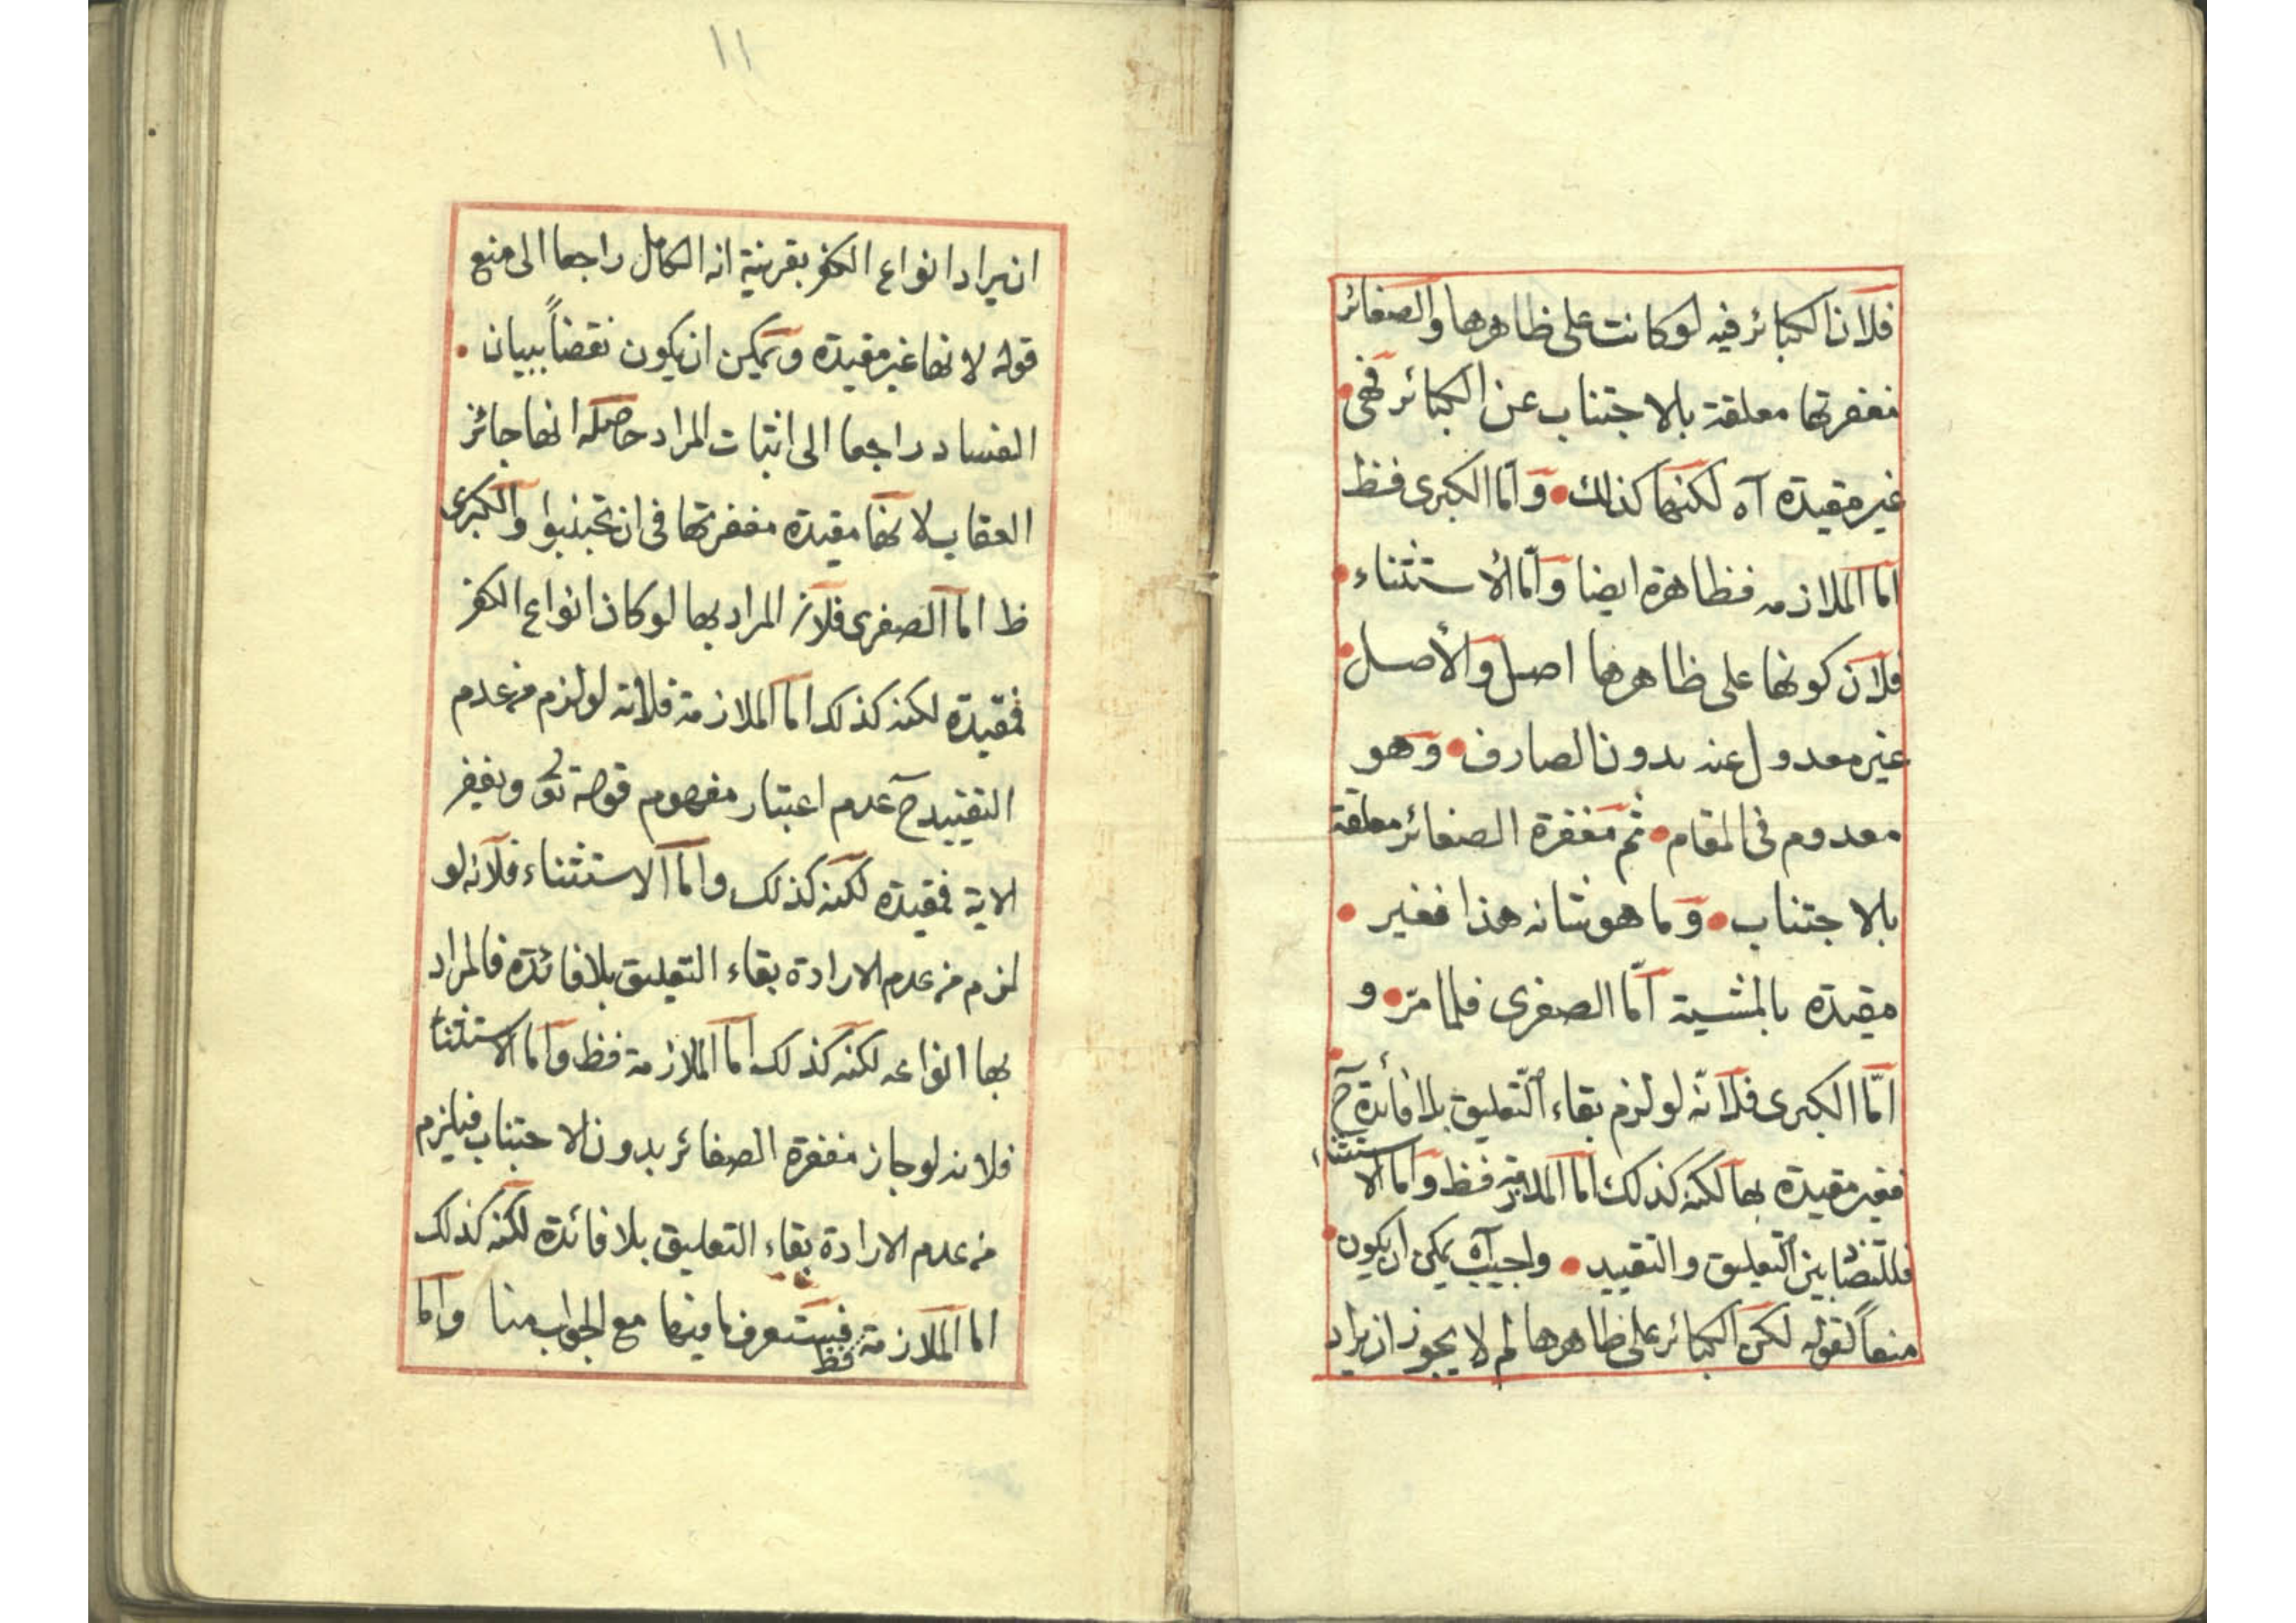 فلان الكبائر فيه لو كانت على ظاهرها والصغائر
مغفرتها معلقة بالاجتناب عن الكبائر فهى
غير مقيدة آه لكنها كذلك وامّا الكبرى فظ
امّا الملازمه فظاهرة ايضا وامّا الأستثناء
فلان كونها على ظاهرها اصل والأصل
غير معدول عنه بدون الصارف وهو
معدوم فى المقام ثم مغفرة الصغائر معلقة
بالاجتناب وما هو شانه هذا فغير
مقيدة بالمشية امّا الصغرى فلما مرّ و
امّا الكبرى فلانّه لو لزم بقاء التّعليق بلا فائدة ح
فغير مقيدة بها لكنه كذلك اما الملازمة فظ واما الاستثناء
فللتضاد بين التعليق والتقييد واجيب آه يمكن ان يكون
منعاً لقوله لكن الكبائر على ظاهرها لم لا يجوز ان يراد
١١
ان يراد انواع الكفر بقرينة انه الكامل راجعا الى منع
قوله لانها غير مقيدة ويمكن ان يكون نقضاً ببيان
الفساد راجعا الى اثبات المراد حاصله انها جائز
العقاب لانها مقيدة مغفرتها فى ان تجتنبوا والكبرى
ظ اما الصغرى فلان المراد بها لو كان انواع الكفر
فمقيدة لكنه كذلك اما الملازمة فلانه لو لزم من عدم
التقييد ح عدم اعتبار مفهوم قوله تع ويغفر
الاية فمقيدة لكنه كذلك واما الاستثناء فلانه لو
لزم من عدم الارادة بقاء التعليق بلا فائدة فالمراد
بها انواعه لكنه كذلك اما الملازمة فظ واما الاستثناء
فلانه لو جاز مغفرة الصغائر بدون الاجتناب فيلزم
من عدم الارادة بقاء التعليق بلا فائدة لكنه كذلك
اما الملازمة فظ فستعرف ما فيها مع الجواب منا واما